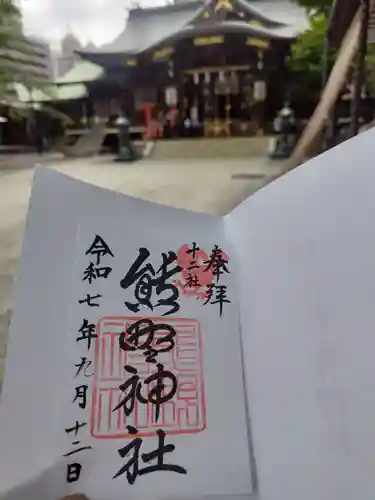 奉拝
十二社
熊野神社
令和七年九月十二日